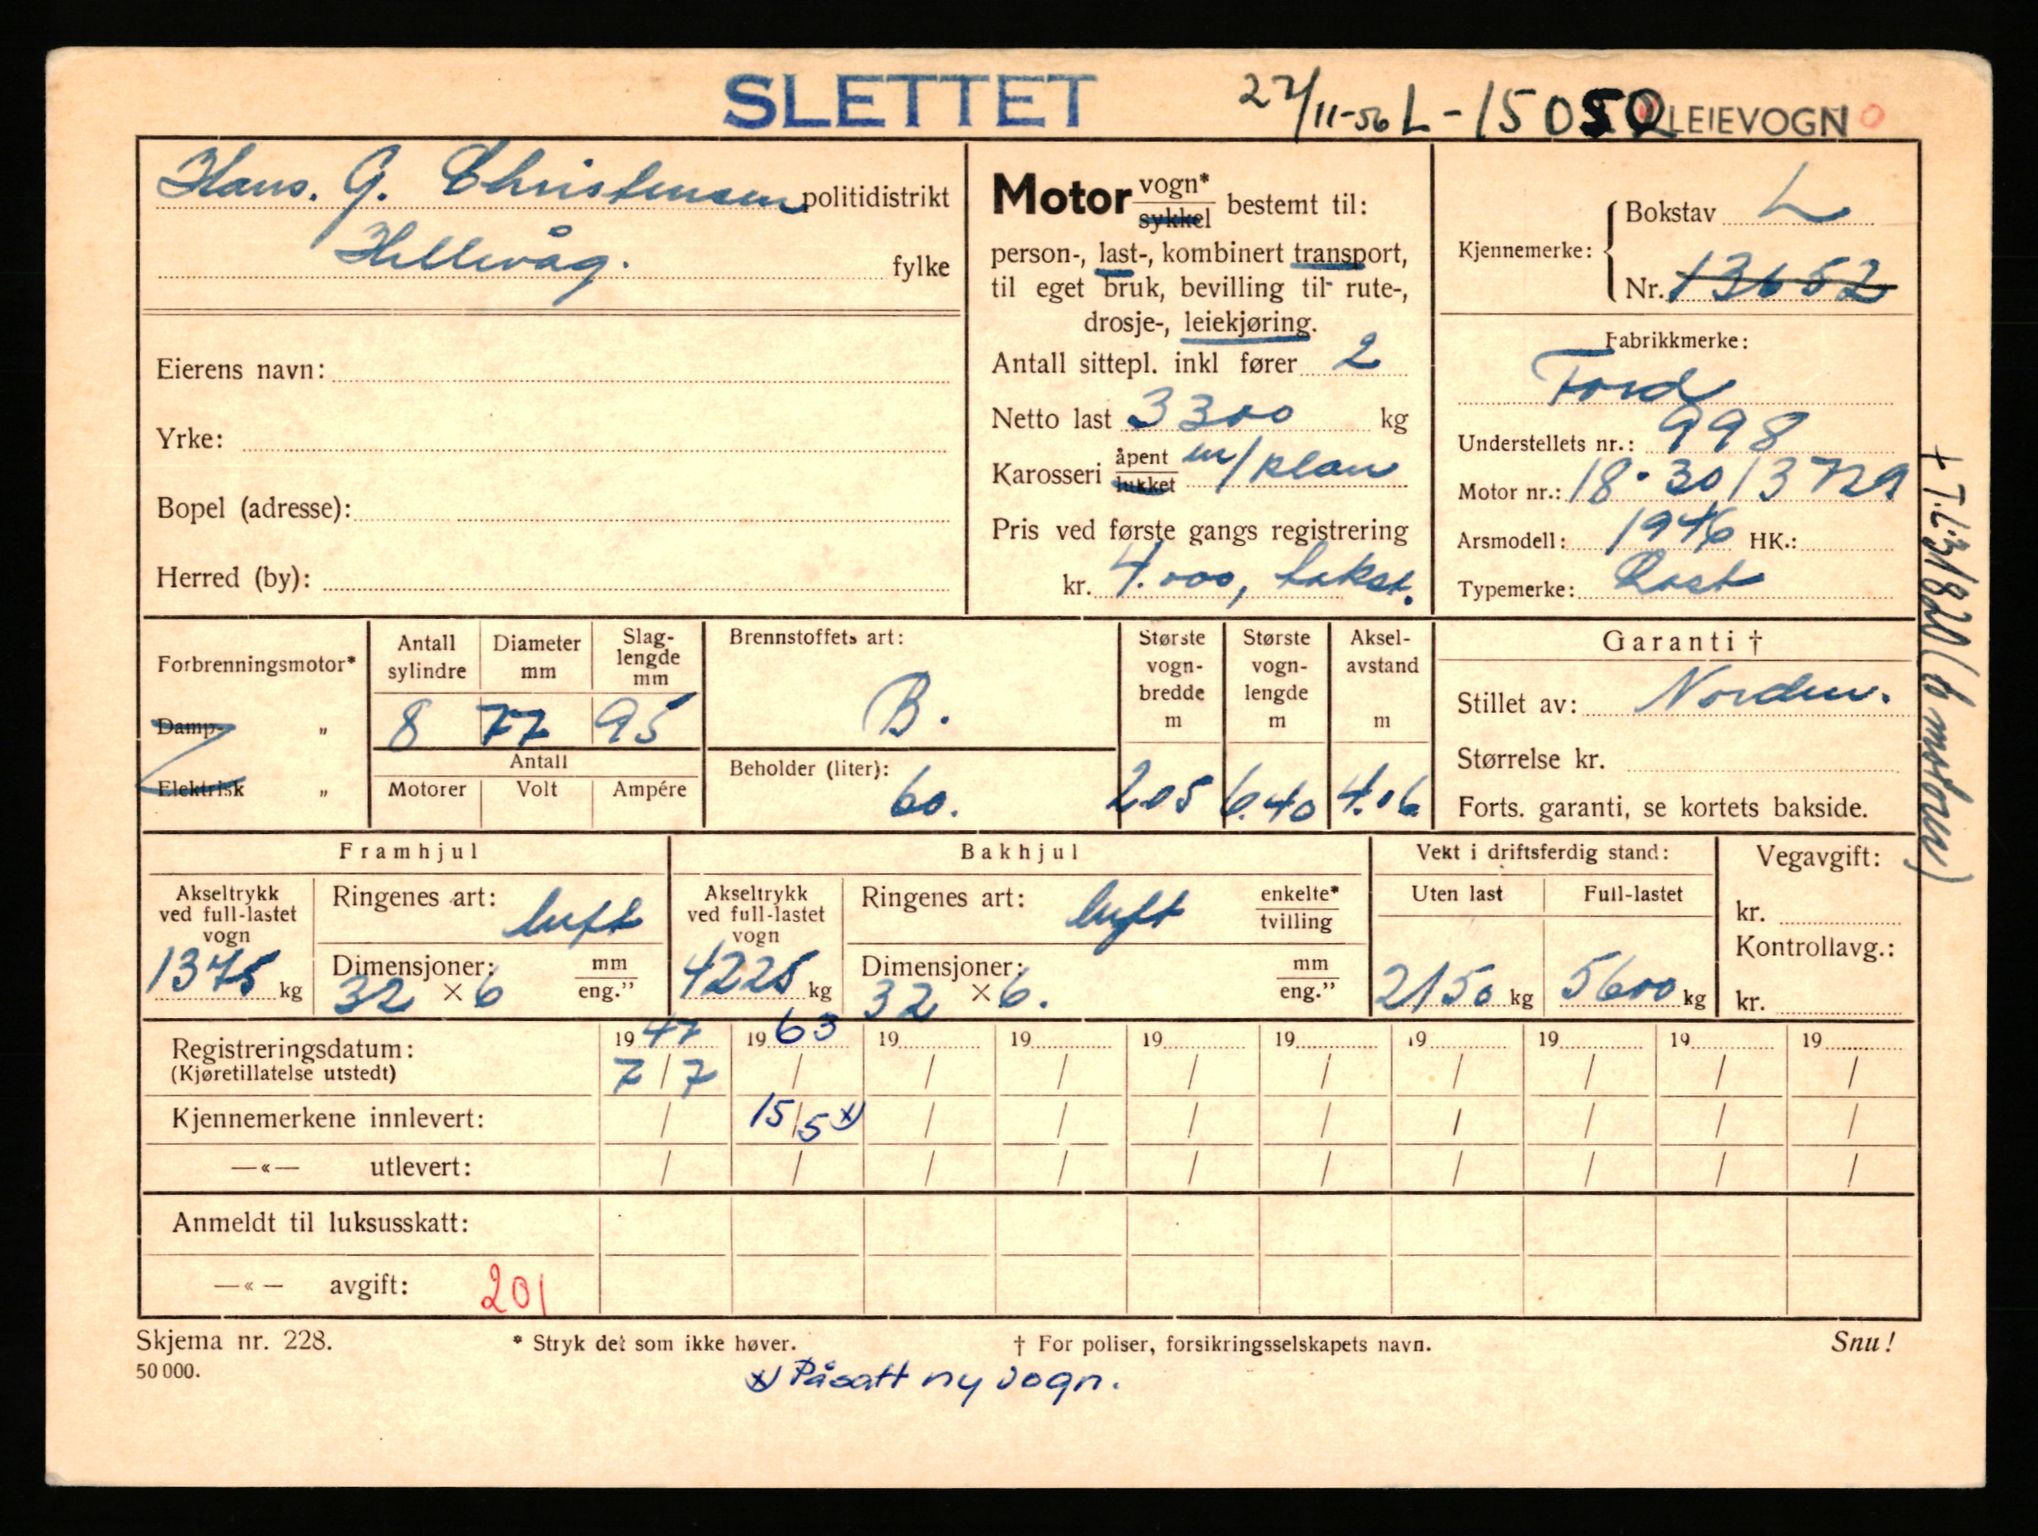 SLETTET 27/11-56 L-15050 LEIEVOGN
Hans. G. Christensen politidistrikt
Hellevåg. fylke
Eierens navn:
Yrke:
Bopel (adresse):
Herred (by):
Motor vogn* sykkel bestemt til:
person-, last-, kombinert transport,
til eget bruk, bevilling til rute-,
drosje-, leiekjøring.
Antall sittepl. inkl fører 2
Netto last 3300 kg
Karosseri åpent lukket m/plan
Pris ved første gangs registrering
kr. 4.000, takst.
Kjennemerke: Bokstav L
Nr. 13652
Fabrikkmerke:
Ford
Understellets nr.: 998
Motor nr.: 18-3013729
Arsmodell: 1946 HK.:
Typemerke: Last
+ T.L.31820 (b motoren)
Forbrenningsmotor*
Damp- „
Elektrisk „
Antall sylindre
8
Diameter mm
77
Slag-lengde mm
95
Antall
Motorer Volt Ampére
Brennstoffets art:
B.
Beholder (liter):
60.
Største vogn-bredde m
2.05
Største vogn-lengde m
6.40
Aksel-avstand m
4.06
Garanti †
Stillet av: Norden.
Størrelse kr.
Forts. garanti, se kortets bakside.
Framhjul
Akseltrykk ved full-lastet vogn
1375 kg
Ringenes art: luft
Dimensjoner: mm eng."
32 × 6
Bakhjul
Akseltrykk ved full-lastet vogn
4225 kg
Ringenes art: luft enkelte* tvilling
Dimensjoner: mm eng."
32 × 6.
Vekt i driftsferdig stand:
Uten last Full-lastet
2150 kg 5600 kg
Vegavgift:
kr.
Kontrollavg.:
kr.
Registreringsdatum: 1947 1963 19 19 19 19 19 19 19 19
(Kjøretillatelse utstedt) 7/7 / / / / / / / / /
Kjennemerkene innlevert: / 15/5 x) / / / / / / / /
—«— utlevert: / / / / / / / / / /
Anmeldt til luksusskatt:
—«— avgift: 201
Skjema nr. 228. * Stryk det som ikke høver. † For poliser, forsikringsselskapets navn. Snu!
50 000.
x) Påsatt ny vogn.